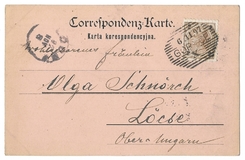 Correspondenz-Karte.
Karta korespondencyjna.
Fräulein
Olga Schnörch
Löcse
Ober-Ungarn